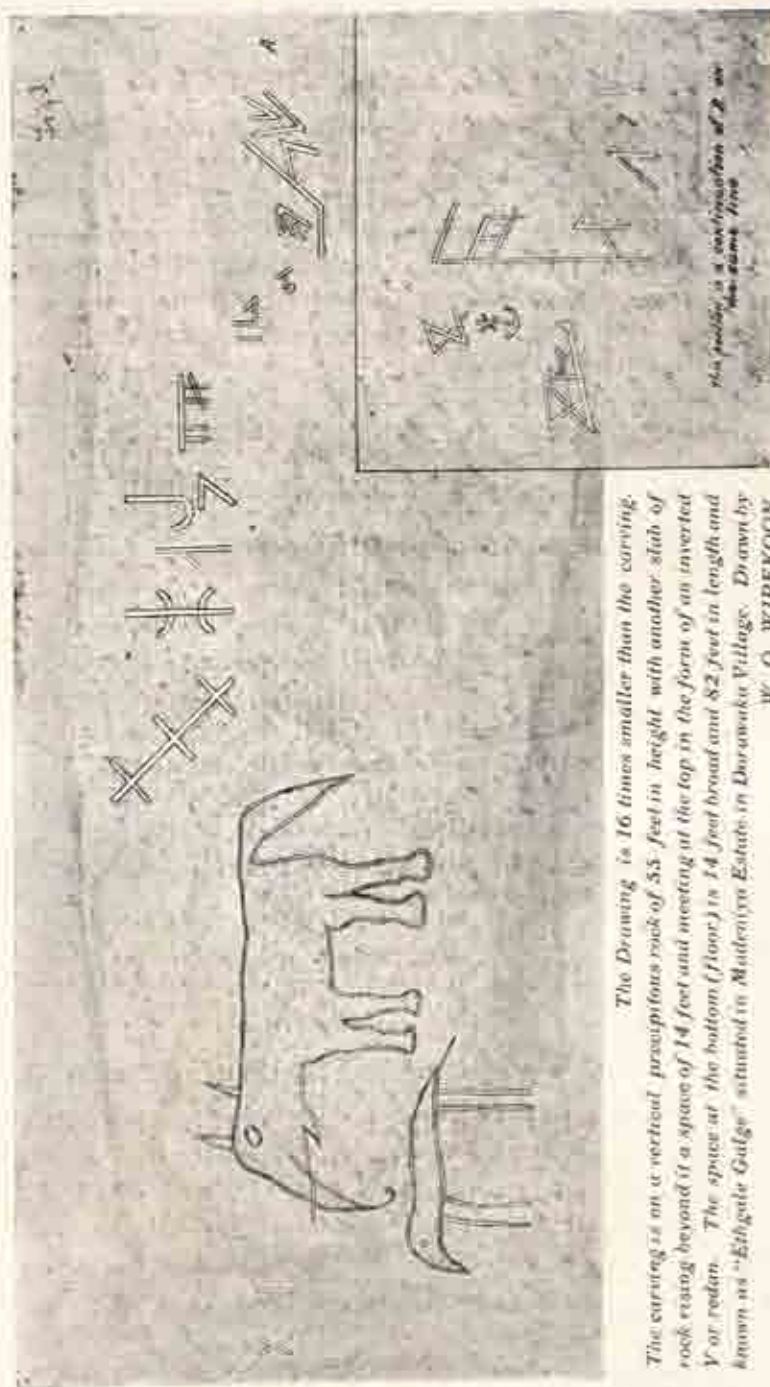 A
this portion is a continuation of A on
the same line
The Drawing is 16 times smaller than the carving.
The carving is on a vertical precipitous rock of 55 feet in height with another slab of
rock rising beyond it a space of 14 feet and meeting at the top in the form of an inverted
V or redan. The space at the bottom (floor) is 14 feet broad and 82 feet in length and
known as "Ethgala Galge" situated in Madeniya Estate in Dorawaka Village. Drawn by
W. O. WIJEKOON